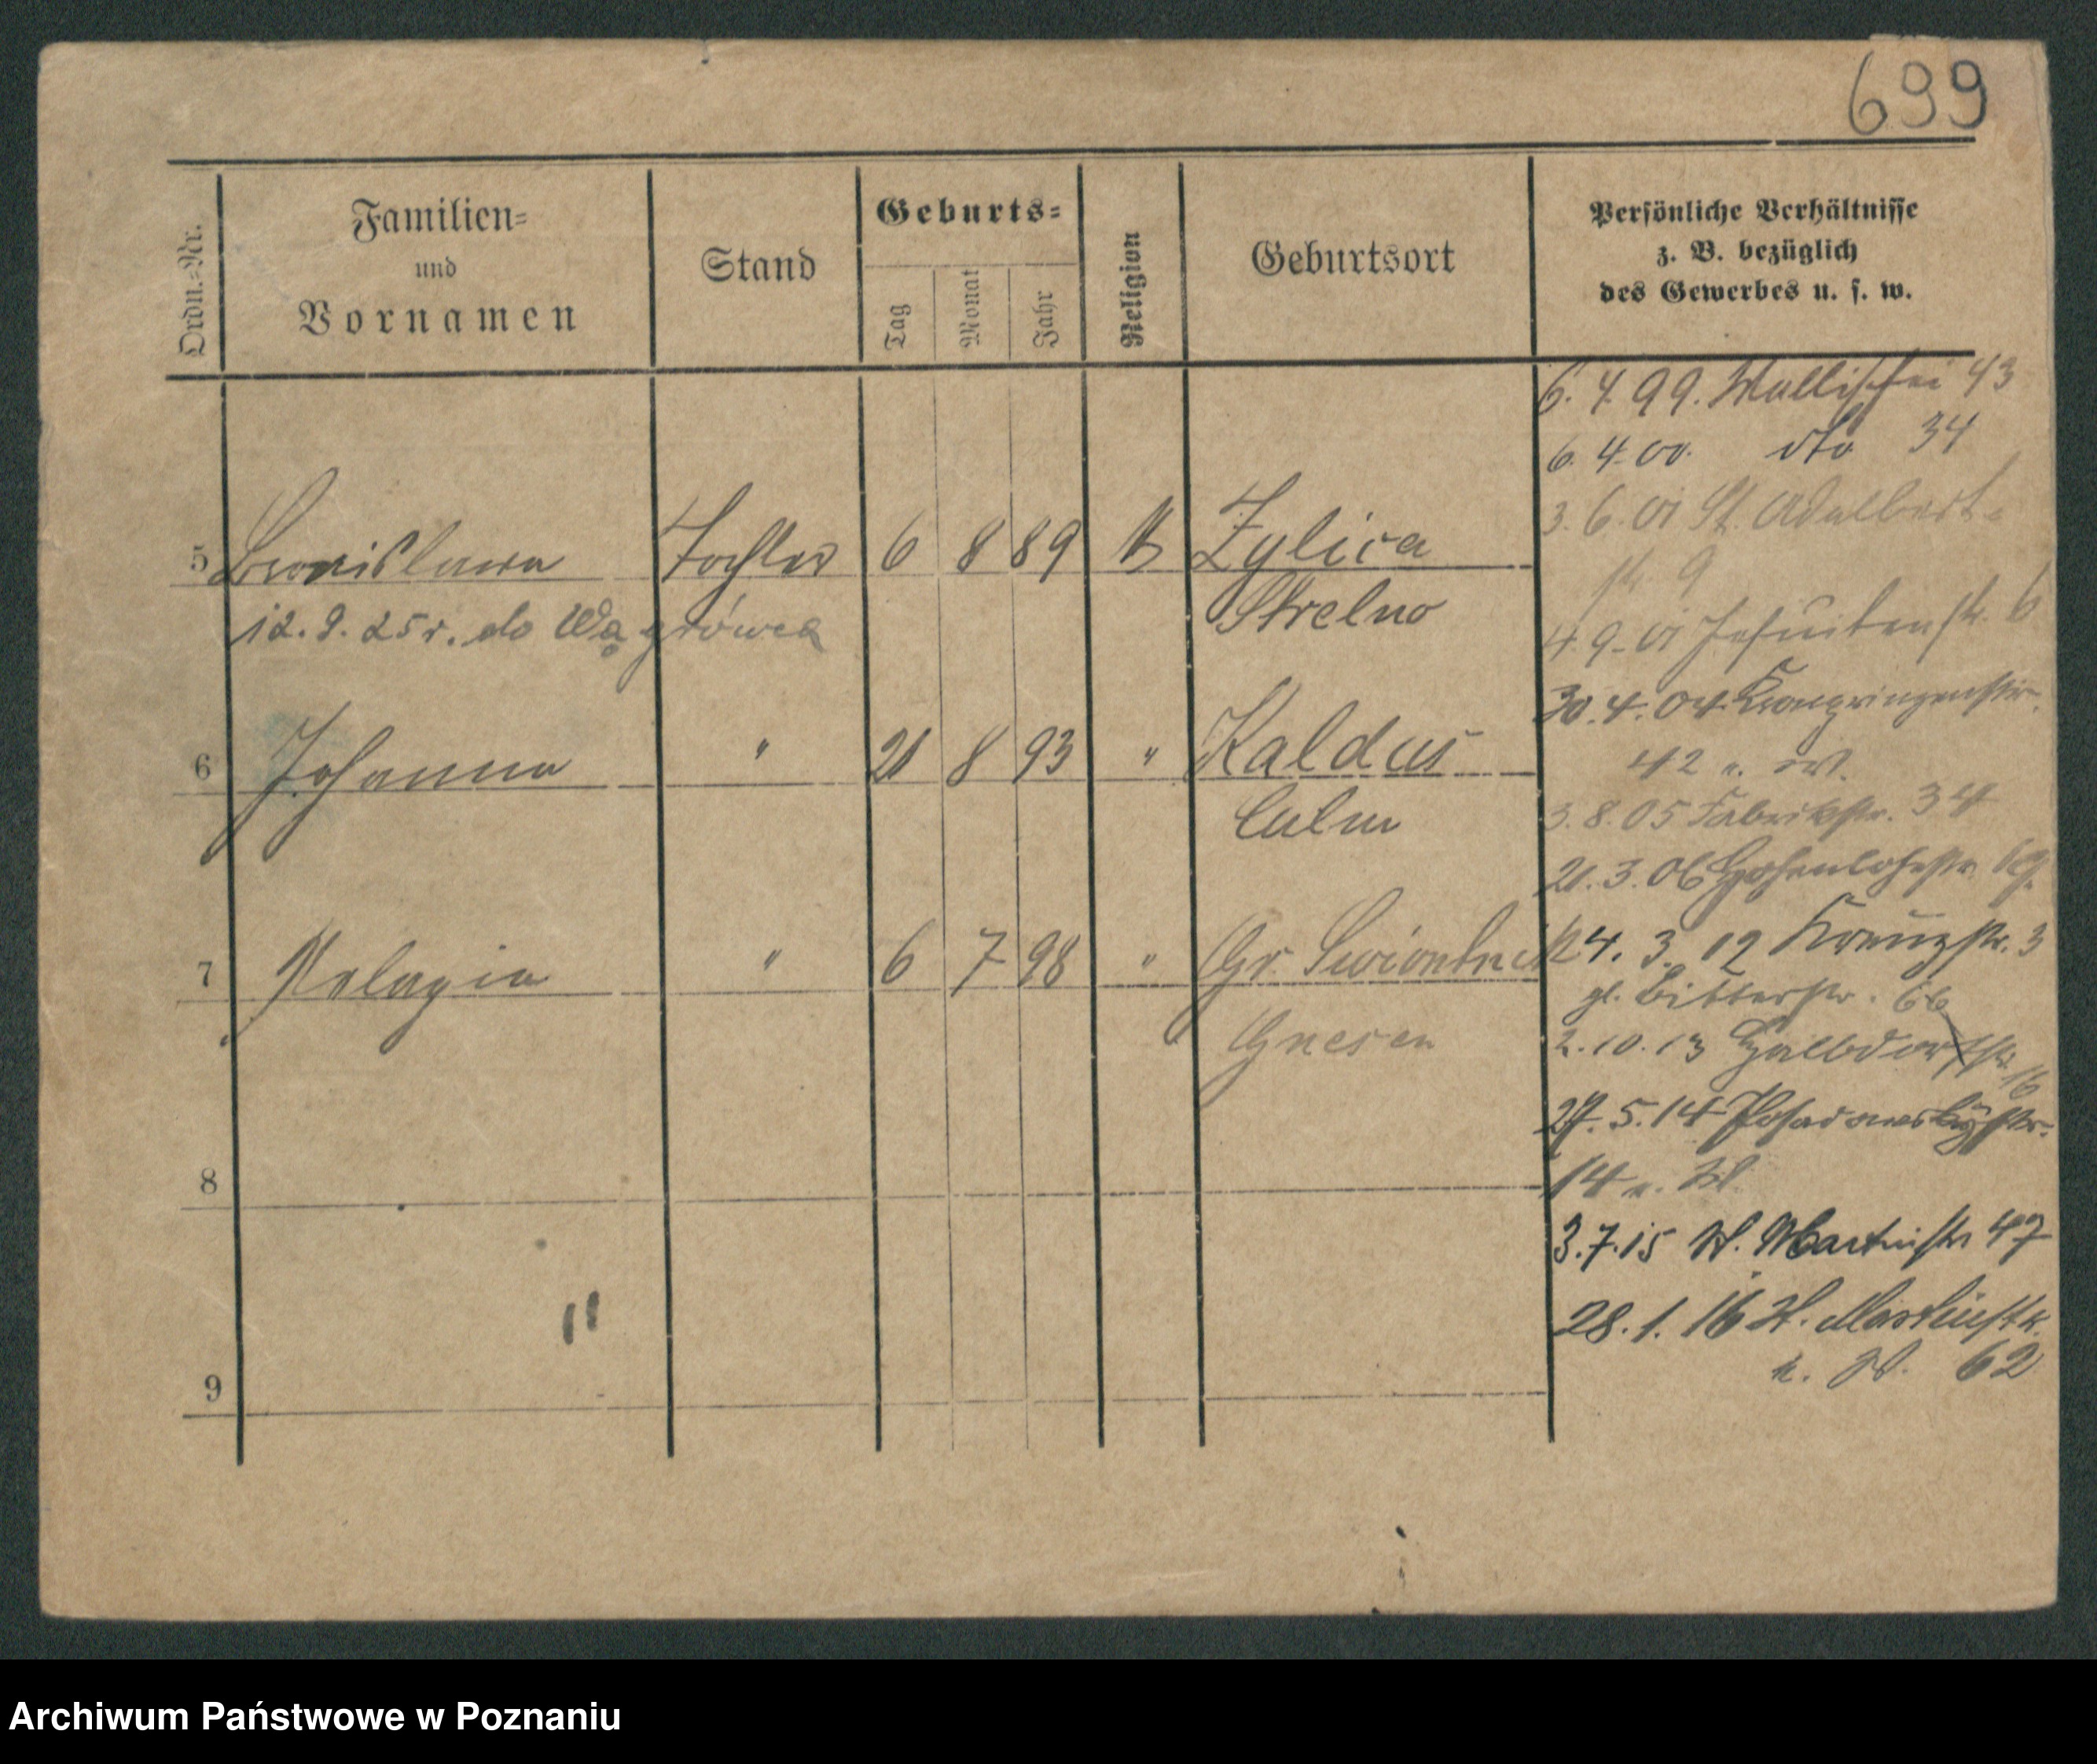 699
Ordn.-Nr.
Familien-
und
Vornamen
Stand
Geburts-
Tag
Monat
Jahr
Religion
Geburtsort
Persönliche Verhältnisse
z. B. bezüglich
des Gewerbes u. s. w.
6. 4. 99. Wallischei 43
6. 4. 00. dto 34
3. 6. 01 St. Adalbert-
str. 9
4. 9. 01 Jesuitenstr. 6
30. 4. 04. Kronprinzenstr.
42
3. 8. 05 Fabrikstr. 34
21. 3. 06 Hohenlohestr.
24. 3. 12 Kreuzstr. 3
gl. Bitterstr.
2. 10. 13 Halbdorfstr. 16
27. 5. 14 Posadowskystr.
14
3. 7. 15 St. Martinstr 47
28. 1. 16 St. Martinstr.
62
5 Bronislawa Tochter 6 8 89 Zylica
Strelno
12. 9. 25 r. do Wągrówca
6 Johanna " 21 8 93 " Kaldus
Culm
7 Pelagia " 6 7 98 " Gr. Swiontnik
Gnesen
8
11
9
Archiwum Państwowe w Poznaniu